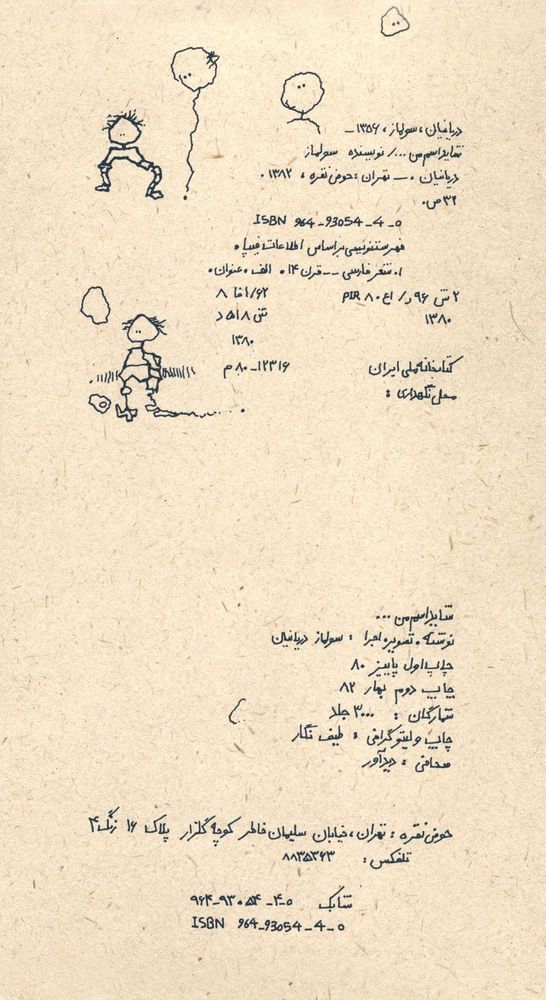 دریانیان، سولماز، ۱۳۵۶ـ
شاید اسم من .../ نویسنده سولماز
دریانیان ـ.ـ تهران : حوض نقره ، ۱۳۸۲.
۳۲ ص.
ISBN 964-93054-4-0
فهرستنویسی براساس اطلاعات فیپا.
۱. شعر فارسی -- قرن ۱۴. الف. عنوان.
۲ ش ۹۶ ر/ PIR ۸۰
۸ فا۱/۶۲
۱۳۸۰
ش ۵۱۸ د
۱۳۸۰
کتابخانه ملی ایران
۱۲۳۱۶-۸۰ م
محل نگهداری :
شاید اسم من ...
نوشته. تصویر. اجرا : سولماز دریانیان
چاپ اول پاییز ۸۰
چاپ دوم بهار ۸۲
شمارگان : ۳۰۰۰ جلد
چاپ و لیتوگرافی : طیف نگار
صحافی : دیدآور
حوض نقره : تهران ، خیابان سلیمان خاطر کوچه گلزار پلاک ۱۶ زنگ ۴
تلفکس : ۸۸۳۵۳۶۳
شابک ۹۶۴-۹۳۰۵۴-۴-۰
ISBN 964-93054-4-0